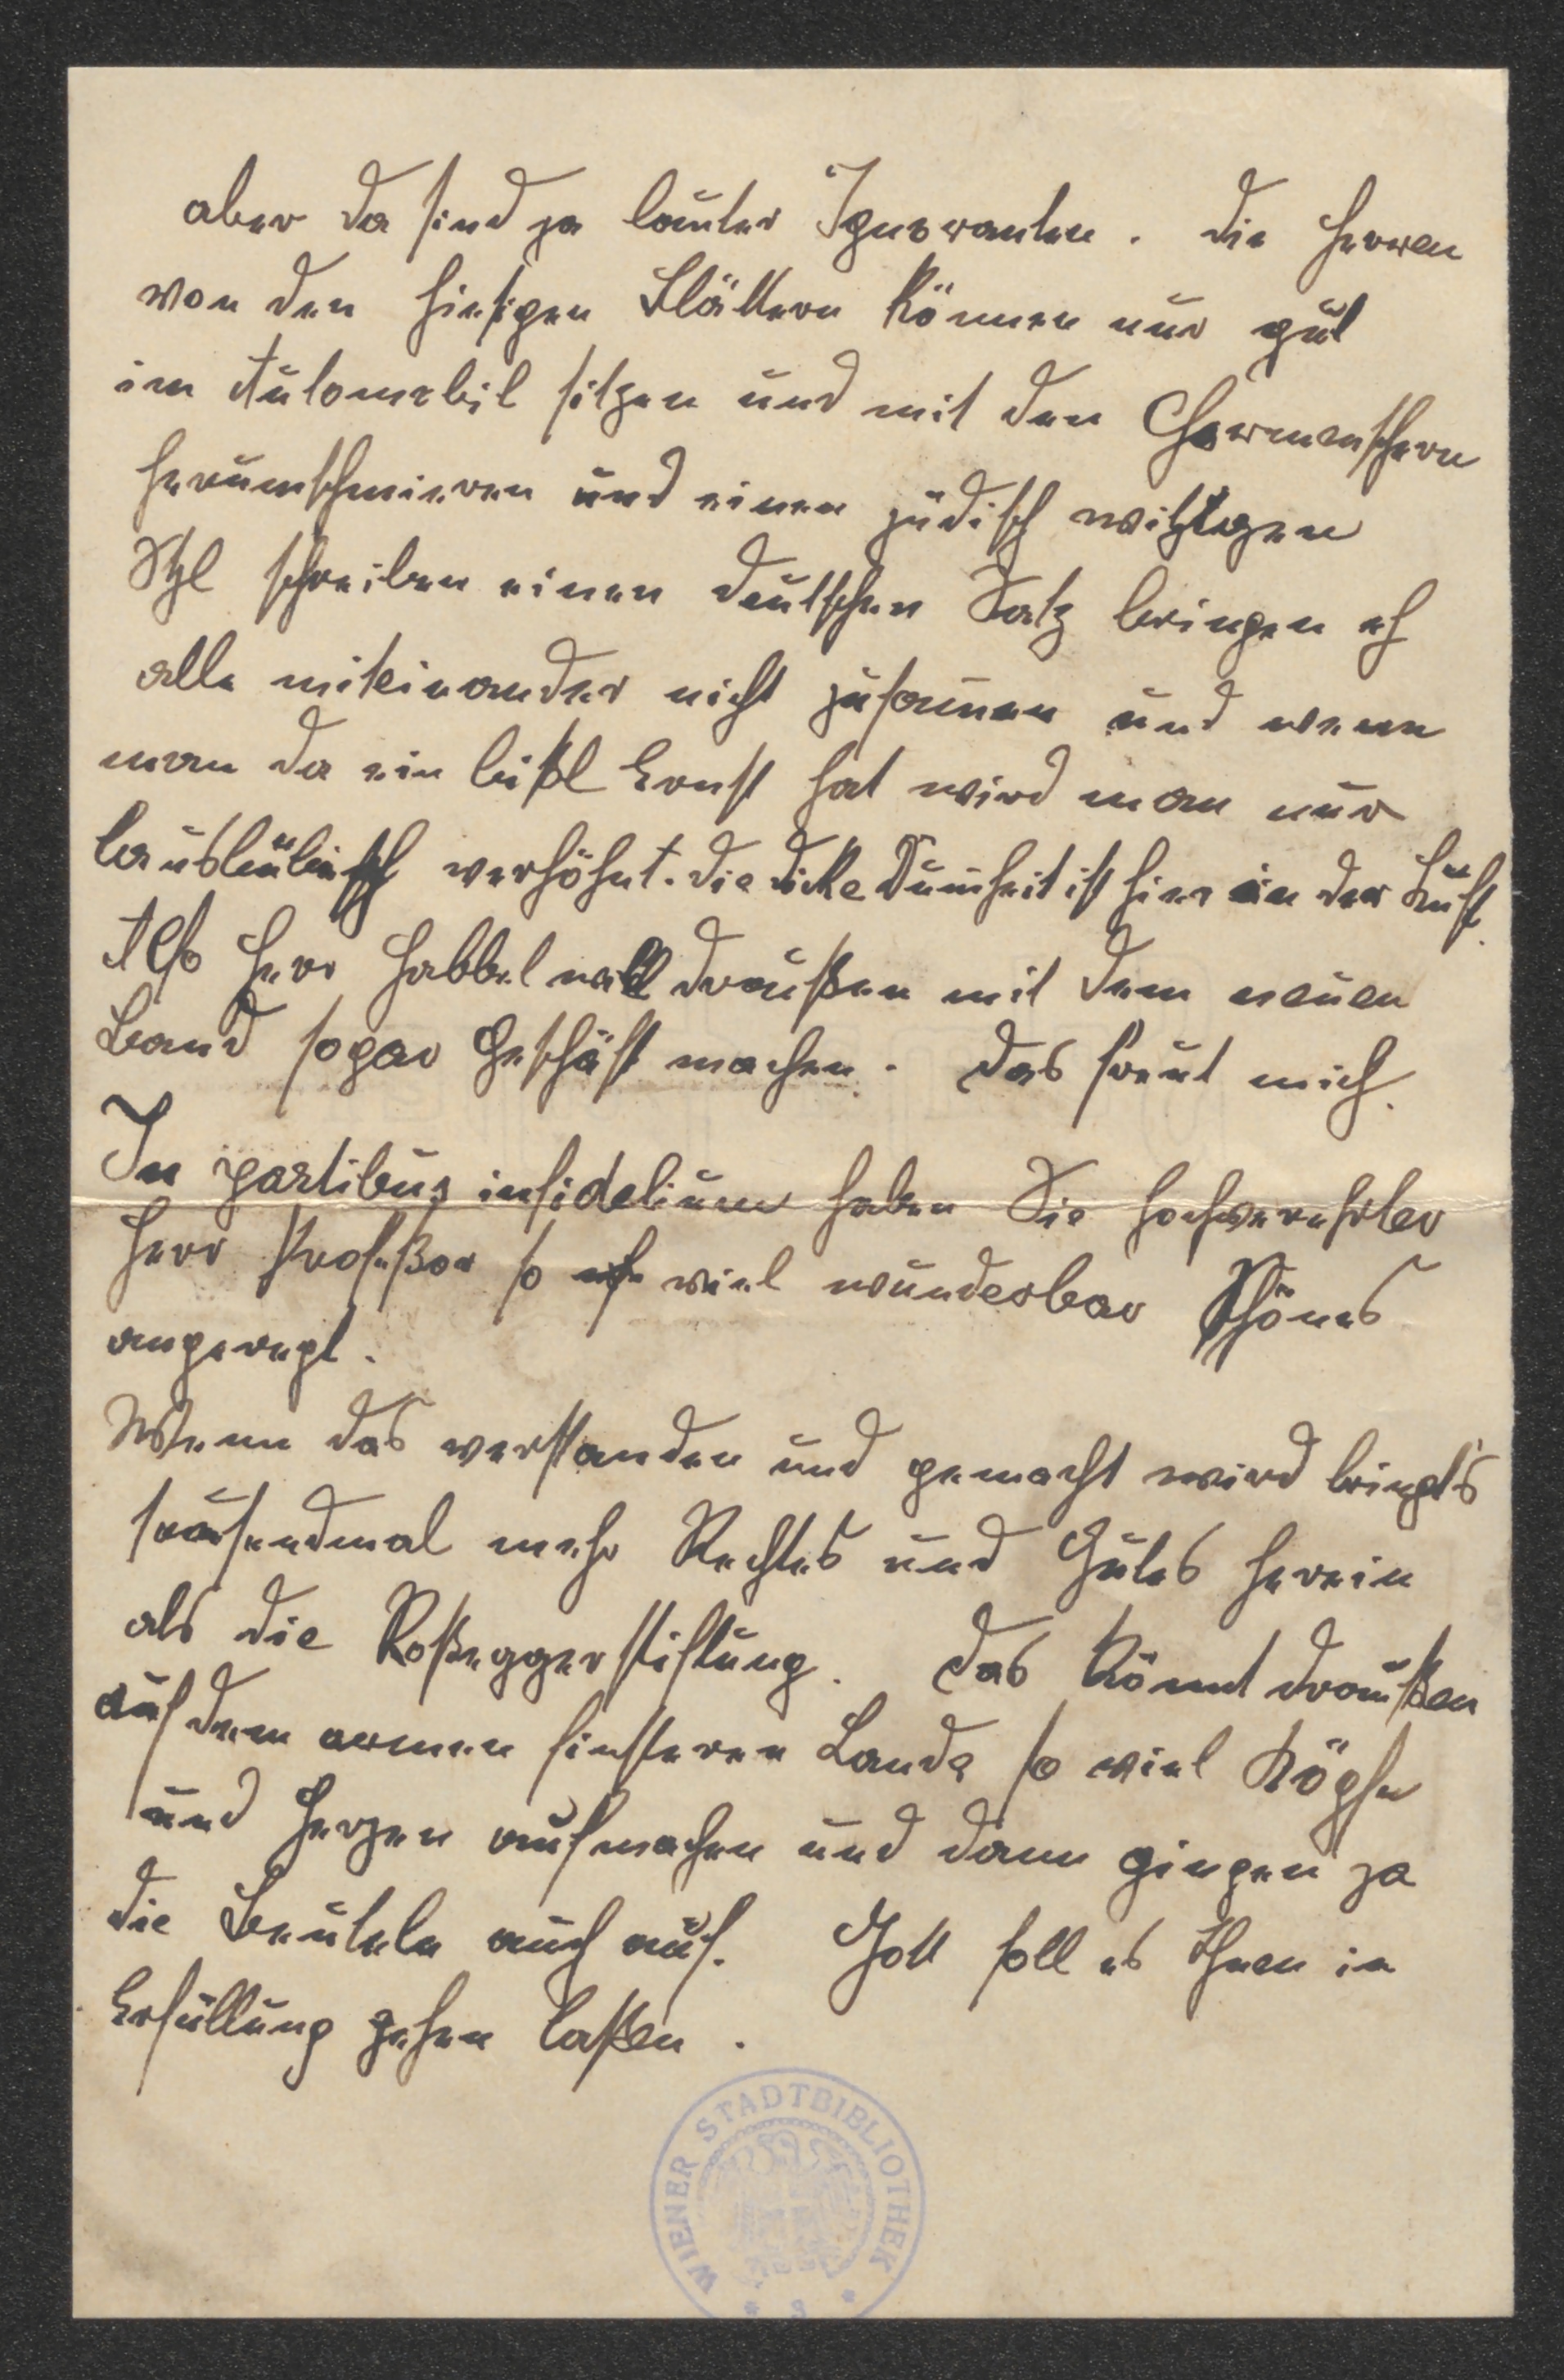 aber da sind ja lauter Ignoranten. Die Herren
von den hiesigen Blättern können nur gut
im Automobil sitzen und mit den Chormenschern
herumschmieren und einen jüdisch witzigen
Styl schreiben einen deutschen Satz bringen eh
alle miteinander nicht zusam̅en und wenn
man da ein bißl Ernst hat wird man nur
lausbübisch verhöhnt. Die dicke Dum̅heit ist hier in der Luft.
Also Herr Habbel will draußen mit dem neuen
Band sogar Geschäft machen. Das freut mich.
In partibus infidelium haben Sie hochverehrter
Herr Profeßor so viel wunderbar Schönes
angeregt.
Wenn das verstanden und gemacht wird bringt's
tausendmal mehr Rechtes und Gutes herein
als die Roßeggerstiftung. Das könnt draußen
auf dem armen finsteren Lande so viel Köpfe
und Herzen aufmachen und dann gingen ja
die Beuteln auch auf. Gott soll es Ihnen in
Erfüllung gehen laßen.
WIENER STADTBIBLIOTHEK